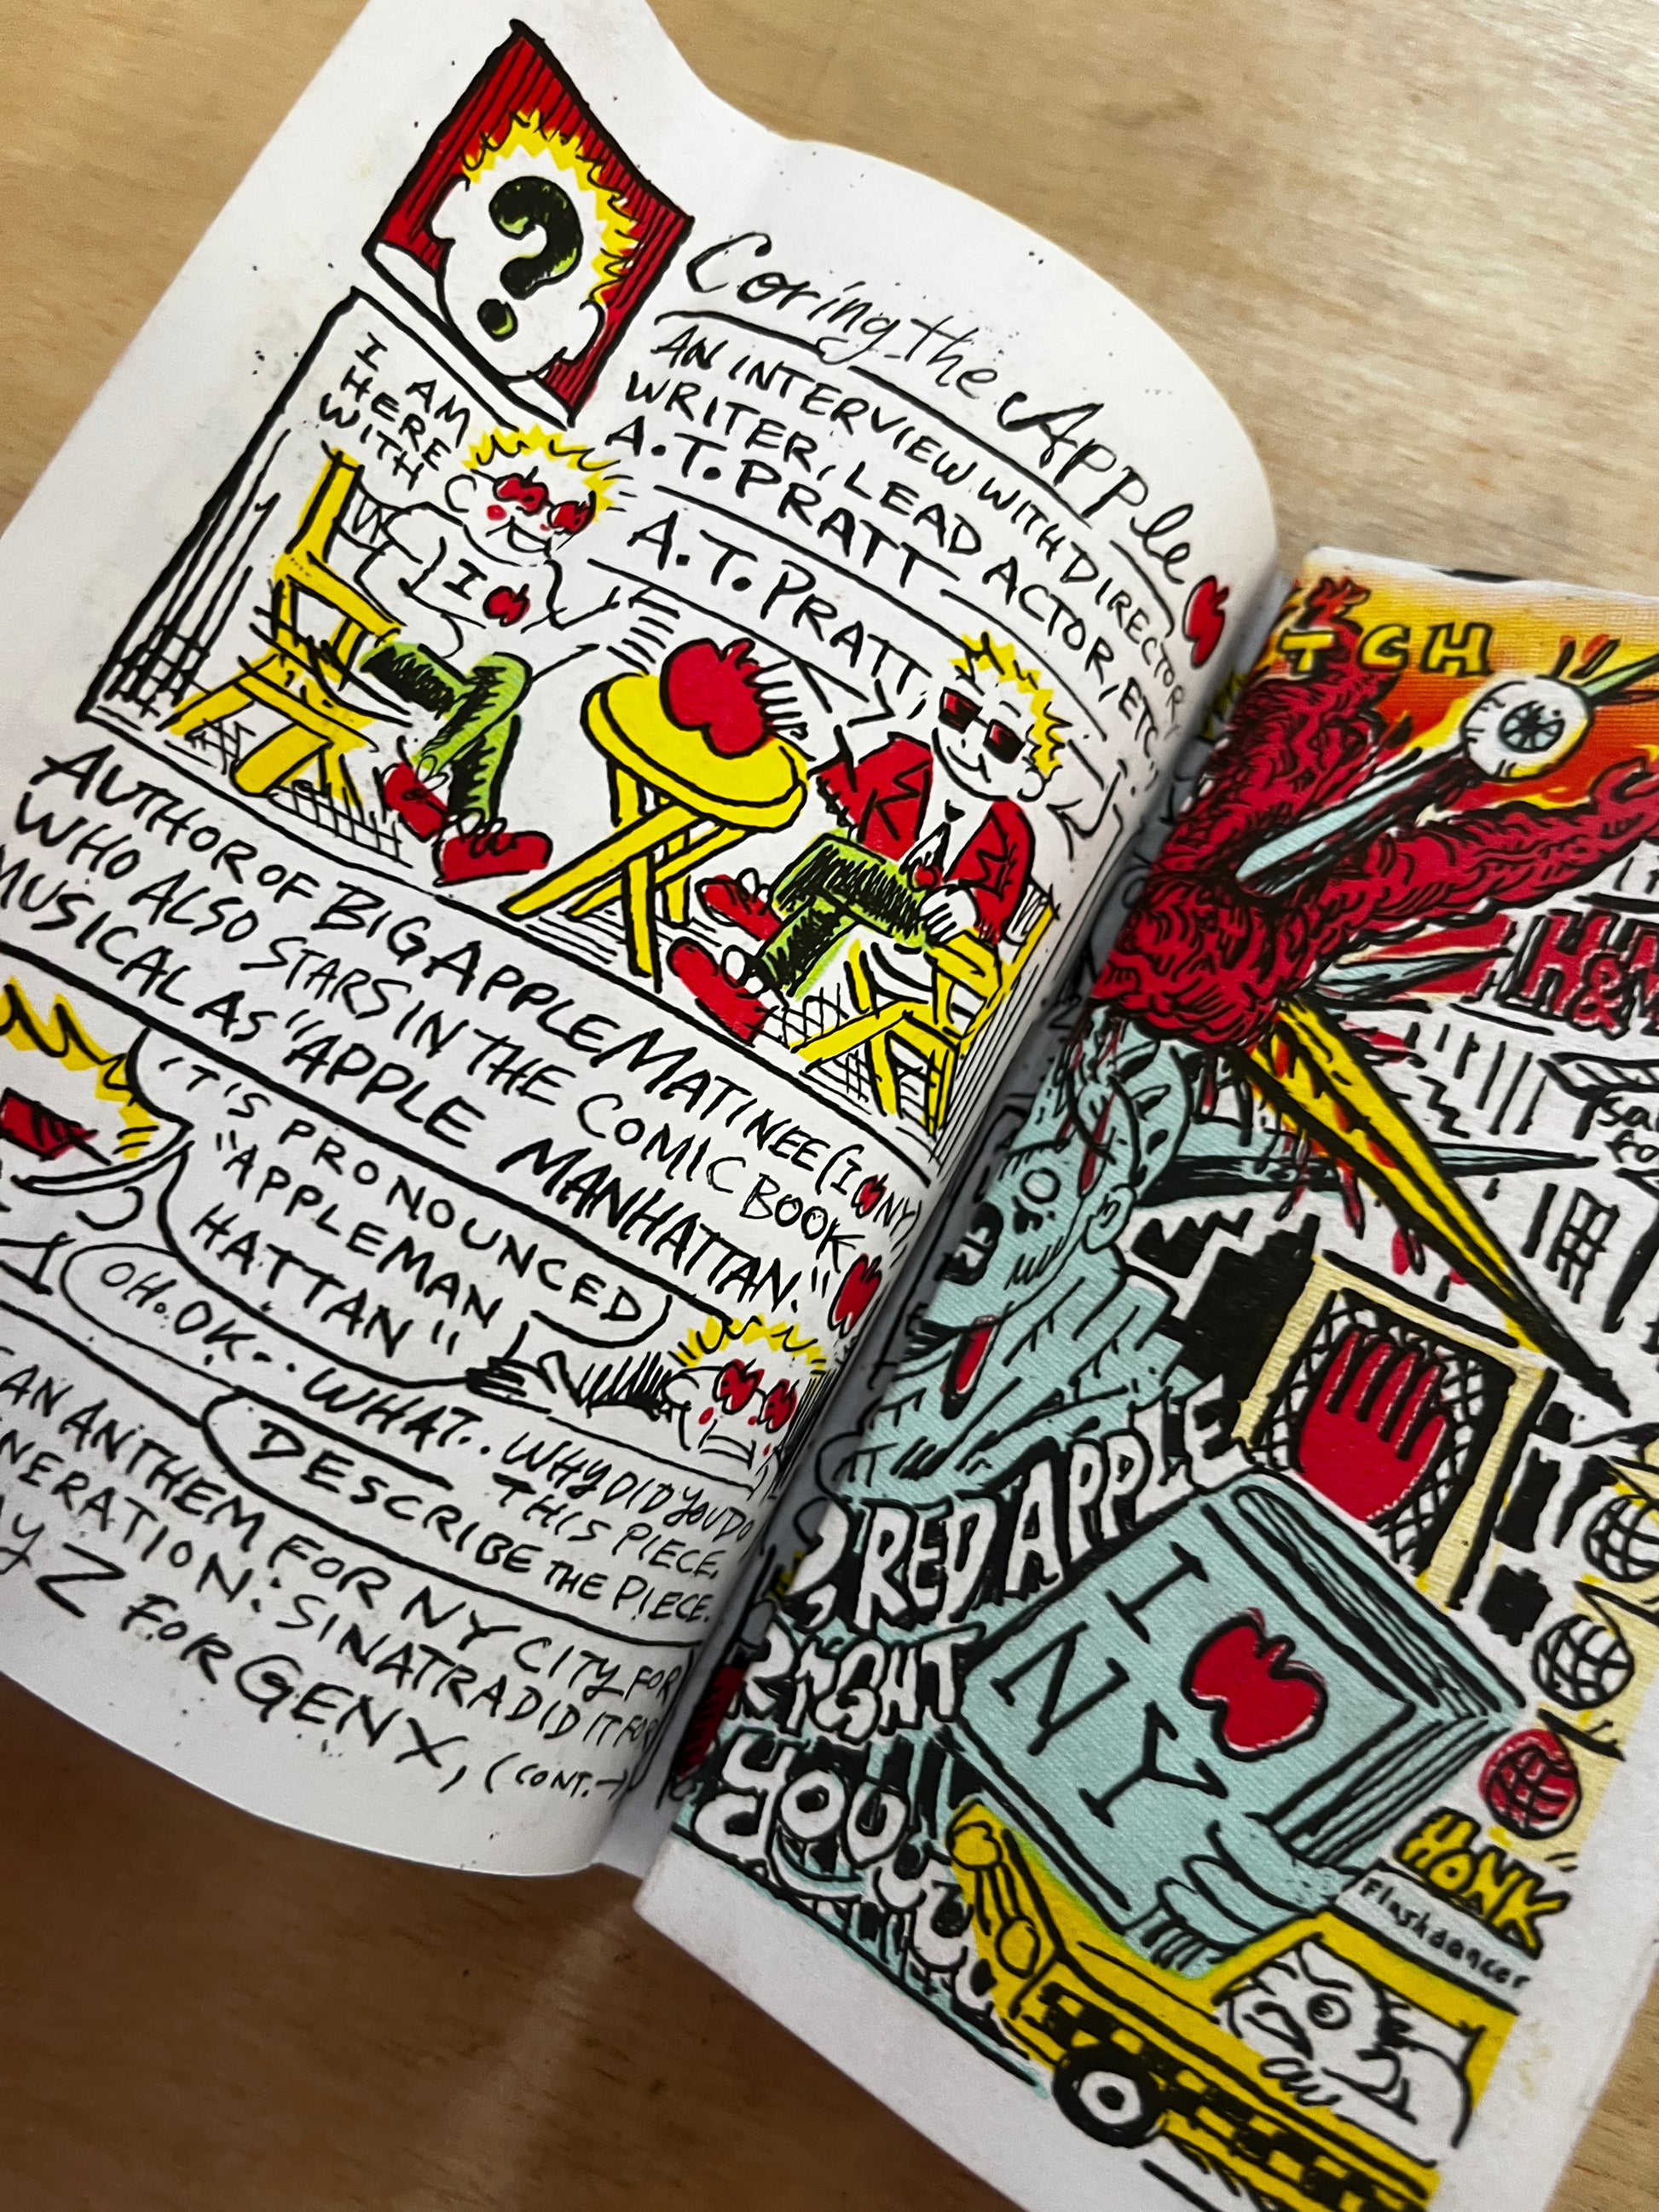 ?
Coring the Apple
AN INTERVIEW WITH DIRECTOR,
WRITER, LEAD ACTOR, ETC.
A.T. PRATT
I AM
HERE
WITH
A.T. PRATT,
I
AUTHOR OF BIG APPLE MATINEE (I NY)
WHO ALSO STARS IN THE COMIC BOOK
MUSICAL AS "APPLE MANHATTAN."
IT'S PRONOUNCED
"APPLEMAN
HATTAN"
OH. OK.. WHAT.. WHY DID YOU DO
THIS PIECE.
DESCRIBE THE PIECE.
AN ANTHEM FOR NY CITY FOR
NERATION: SINATRA DID IT FOR
AY Z FOR GEN X, (CONT.→)
TCH
H&M
RED APPLE
RIGHT
YOU
I
NY
HONK
Flashdancer